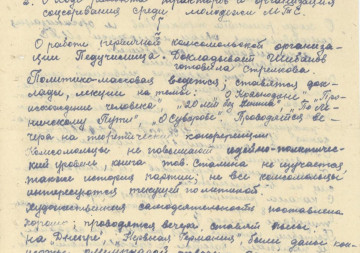 3. О ходе ремонта тракторов и организация
соцсоревнования среди молодежи МТС.
О работе первичной комсомольской организа-
ции Педучилища. Докладывает Шибалов
готовила Стрелкова
Политико-массовая ведется; ставятся док-
лады, лекции на темы: "Про-
исхождение человека", "20 лет без Ленина", "По Ле-
нинскому Пути", "О Суворове". Проводятся ве-
чера на теоретические конференции
Комсомольцы не повышают идейно-политичес-
кий уровень, книга тов. Сталина не изучается,
также история партии; не все комсомольцы
интересуются текущей политикой.
Художественная самодеятельность поставлена
хорошо; проводятся вечера, ставят пьесы
на Днепре, были даны кон-